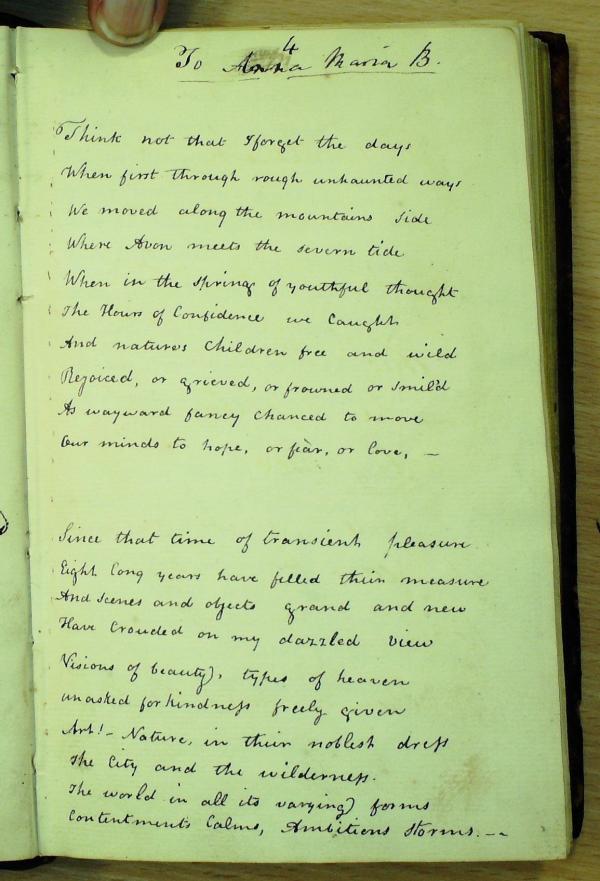 4
To Anna Maria B.
Think not that I forget the days
When first through rough unhaunted ways
We moved along the mountains side
Where Avon meets the severn tide
When in the spring of youthful thought
The Hours of Confidence we Caught
And natures Children free and wild
Rejoiced, or grieved, or frowned or smil'd
As wayward fancy Chanced to move
Our minds to hope, or fear, or love, —
Since that time of transient pleasure
Eight long years have filled their measure
And scenes and objects grand and new
Have Crouded on my dazzled view
Visions of beauty, types of heaven
unasked for kindness freely given
Art! – Nature, in their noblest dress
The City and the wilderness.
The world in all its varying forms
Contentments Calms, Ambitions Storms. —